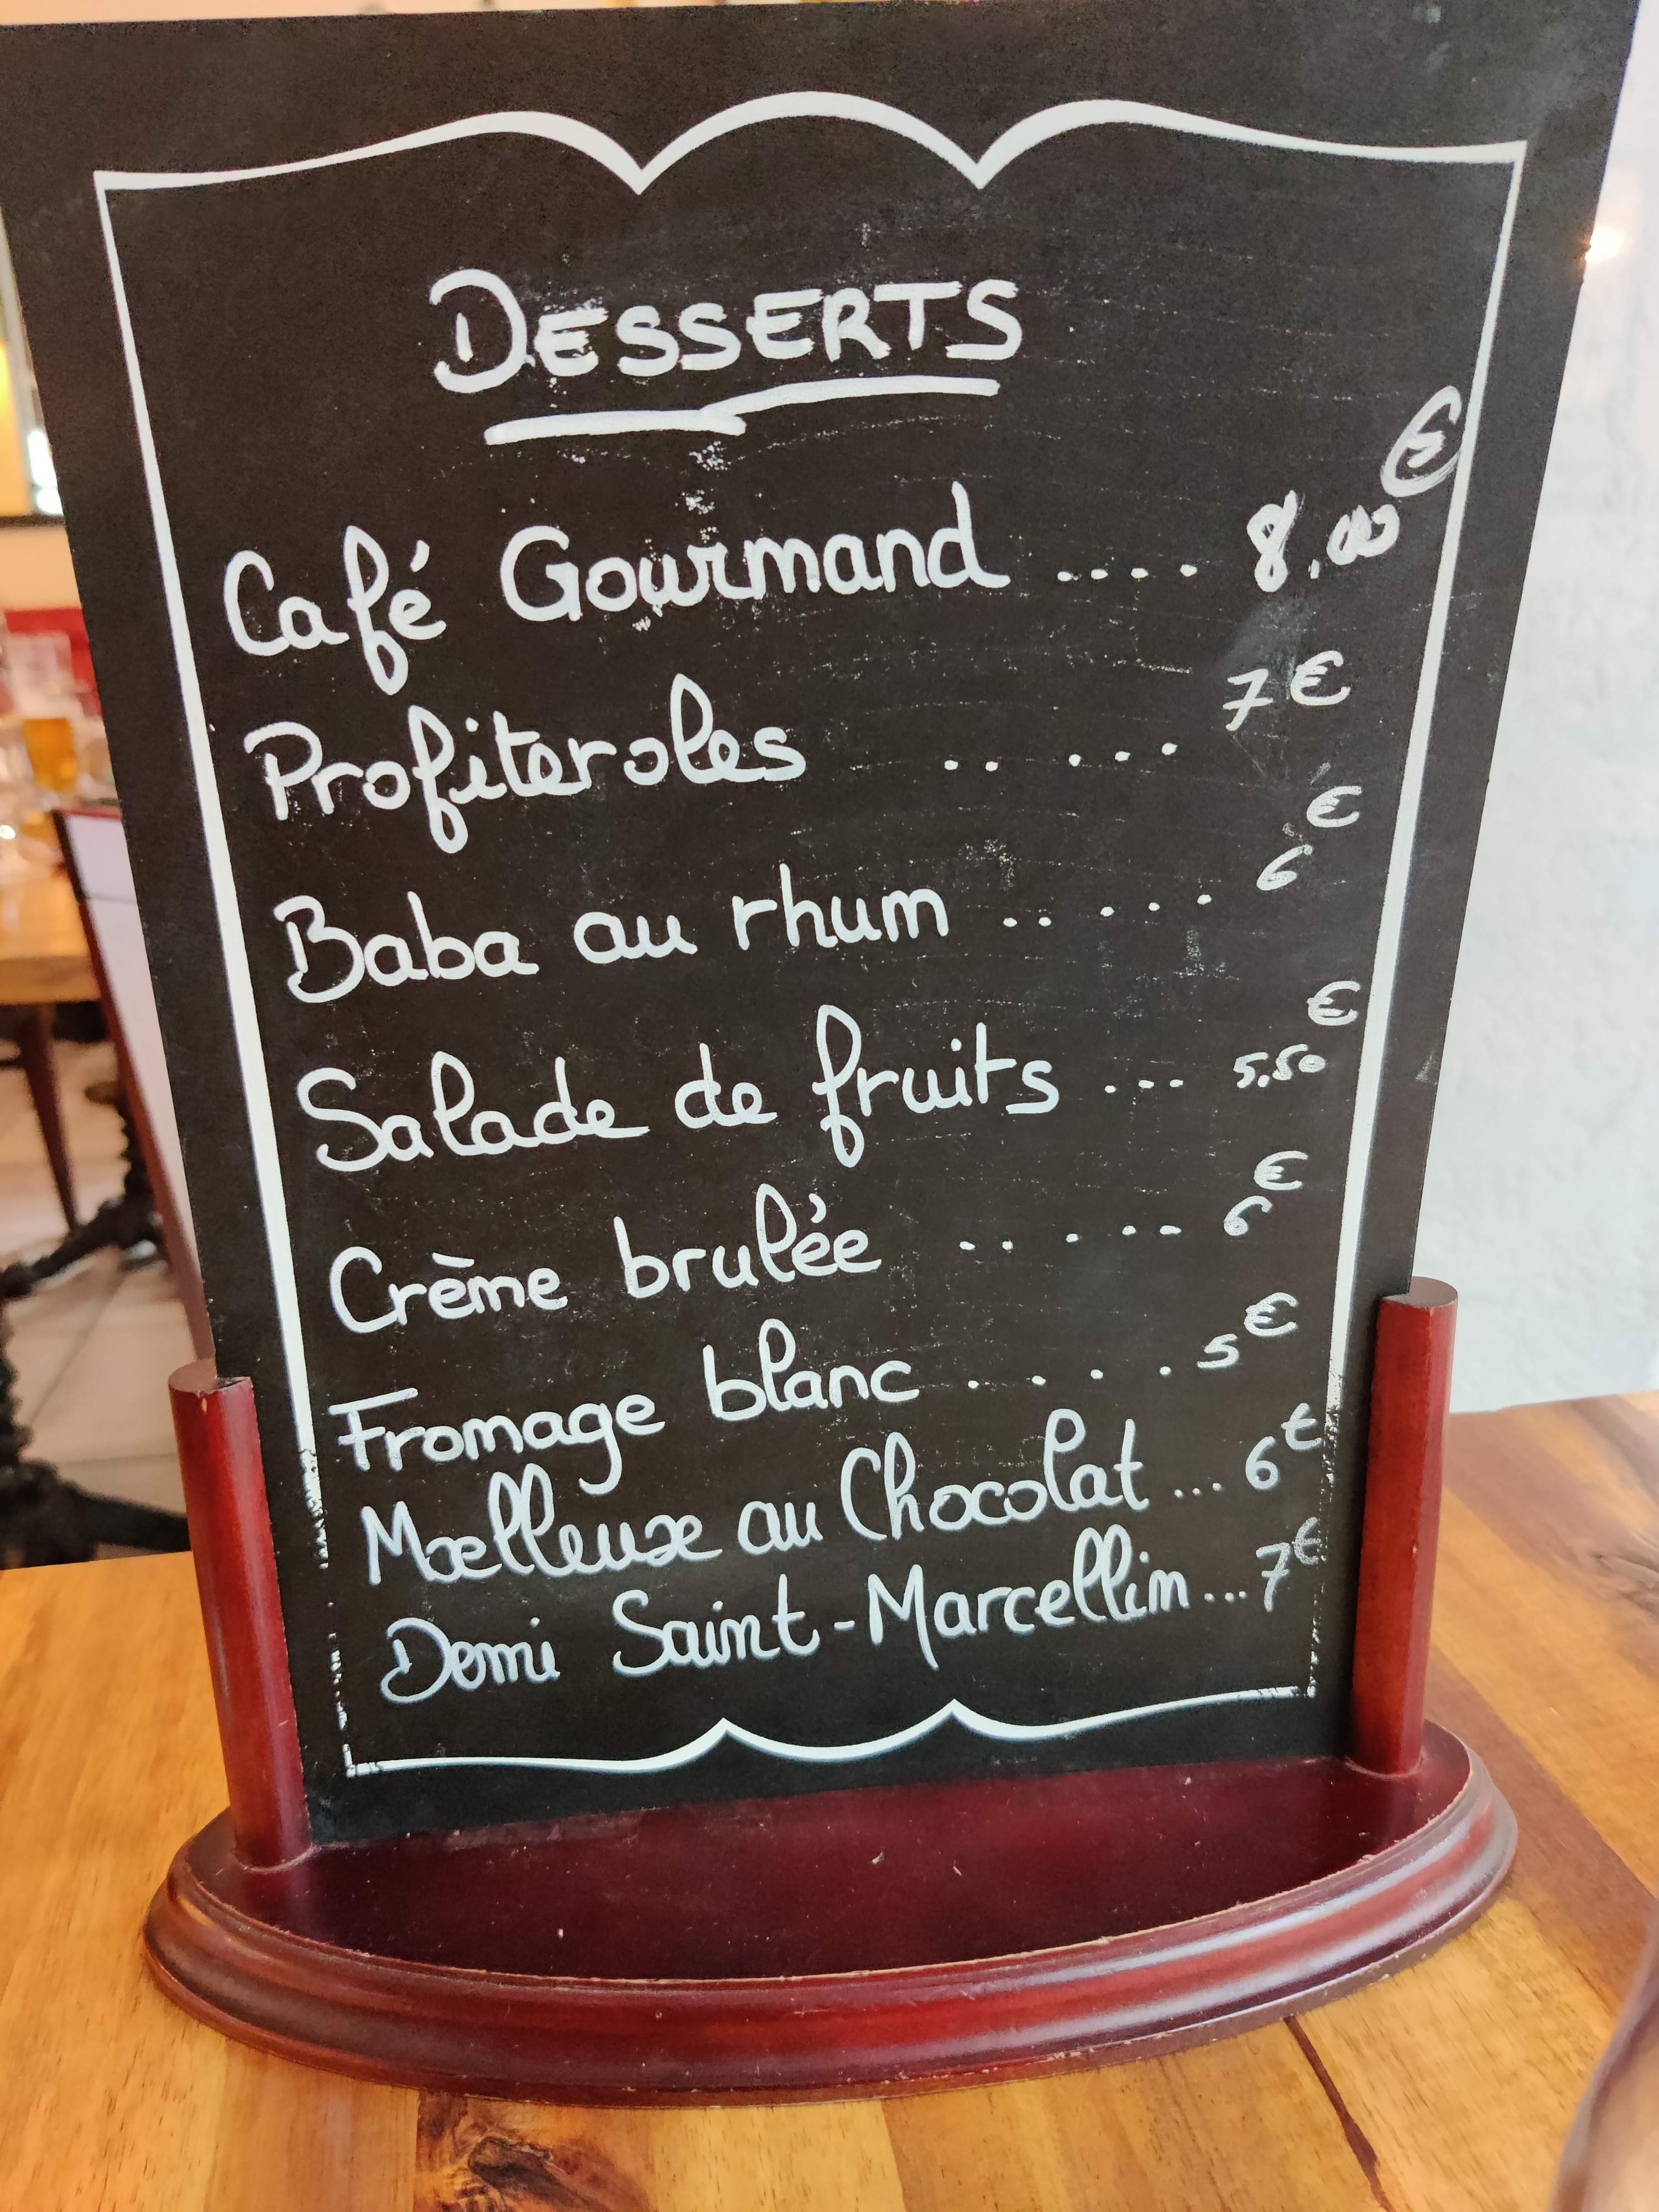 DESSERTS
Café Gourmand .... 8,00 €
Profiteroles .. ... 7 €
Baba au rhum .. ... 6 €
Salade de fruits ... 5,50 €
Crème brulée .. . .. 6 €
Fromage blanc . . . . 5 €
Mœlleux au Chocolat ... 6 €
Demi Saint-Marcellin ... 7 €